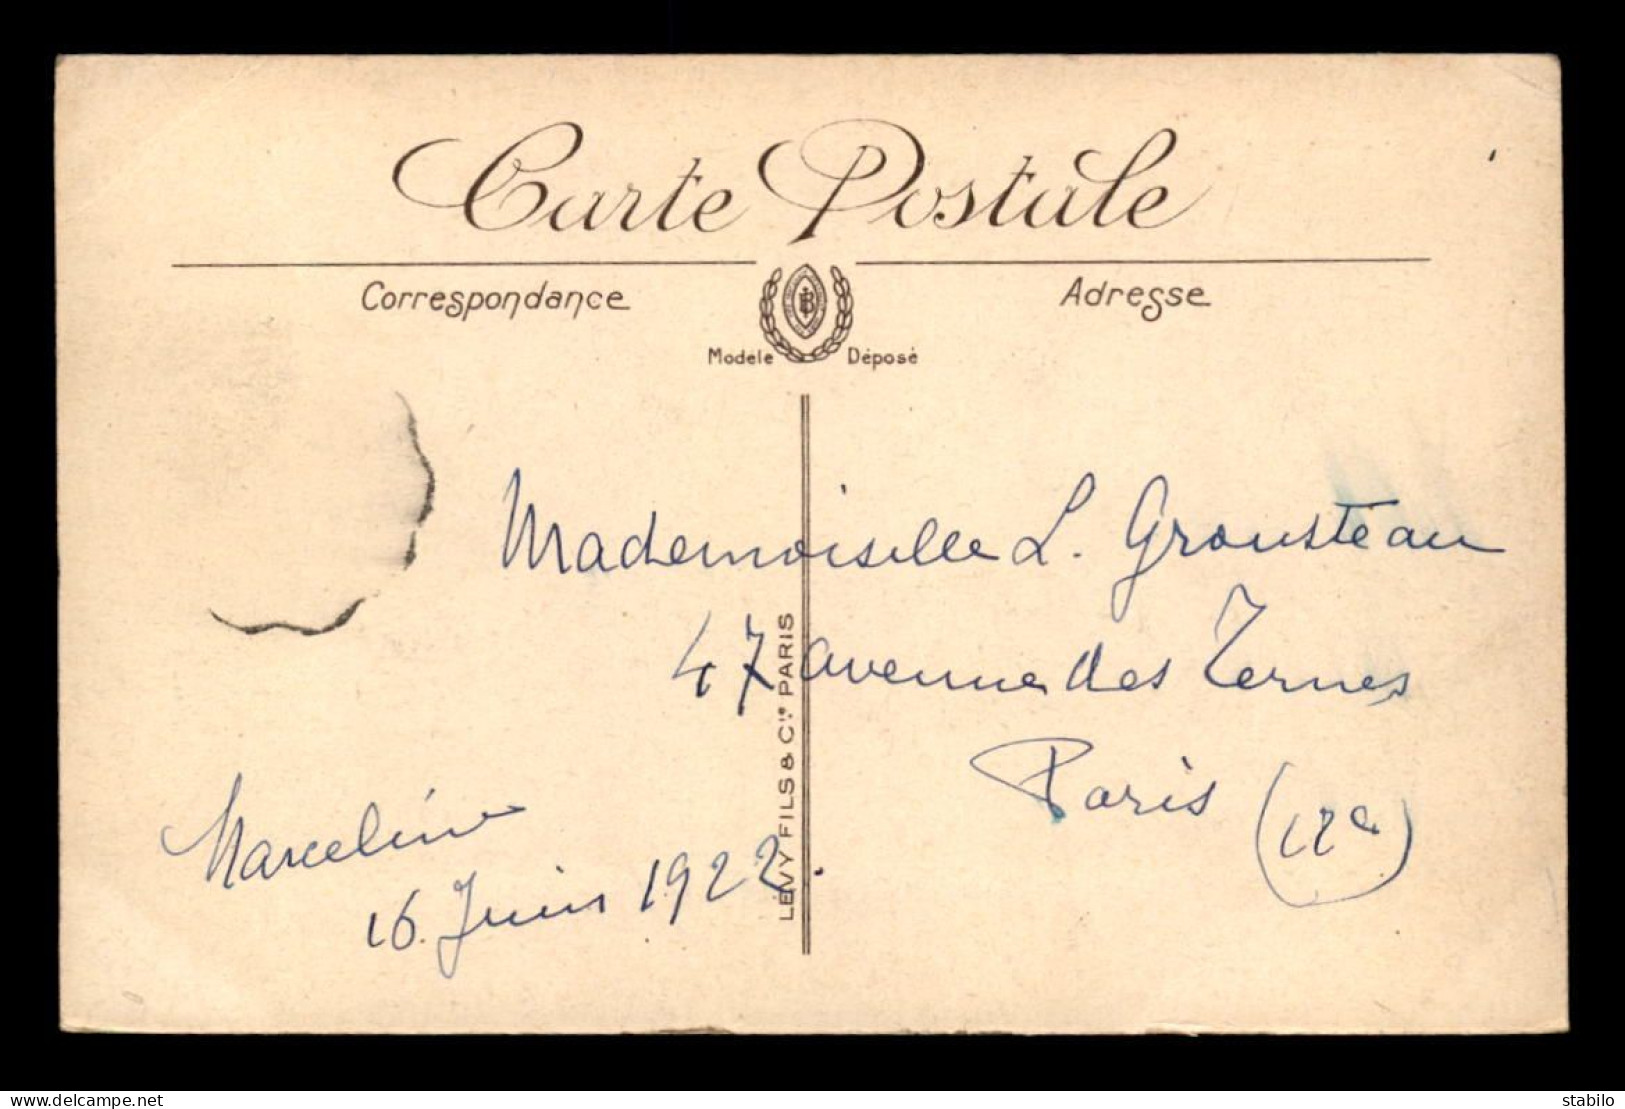 Carte Postale
Correspondance
Adresse
Modèle Déposé
Mademoiselle L. Grousteau
47 avenue des Ternes
Paris (17e)
Marceline
16 Juin 1922.
LÉVY FILS & Cie PARIS
delcampe.net
stabilo